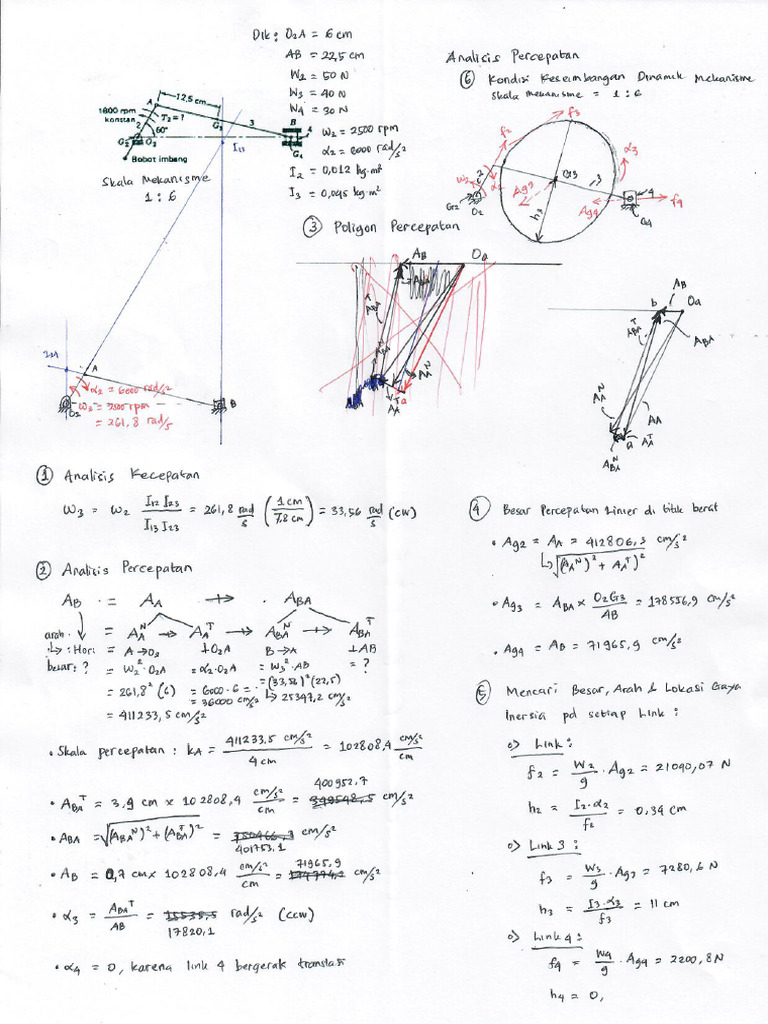 Dik : O2A = 6 cm
AB = 22,5 cm
W2 = 50 N
W3 = 40 N
W4 = 30 N
ω2 = 2500 rpm
α2 = 6000 rad/s²
I2 = 0,012 kg·m²
I3 = 0,045 kg·m²
12,5 cm
A
1800 rpm
konstan
T2 = ?
3
B
4
G3
G2
2
60°
O2
G4
I13
Bobot imbang
Skala Mekanisme
1 : 6
A
α2 = 6000 rad/s²
ω2 = 2500 rpm
= 261,8 rad/s
O2
B
③ Poligon Percepatan
AB
Oa
ABA
ABA^T
AA^N
AA^T
a
Analisis Percepatan
⑥ Kondisi Keseimbangan Dinamik Mekanisme
Skala mekanisme = 1 : 6
f3
f2
α3
2
ω2
α2
G3
3
Ag3
h3
G2
O2
4
f4
Ag4
G4
AB
b
Oa
ABA^T
ABA
AA^N
AA
a
AA^T
ABA^N
① Analisis Kecepatan
ω3 = ω2 I12 I23 / I13 I23 = 261,8 rad/s (1 cm / 7,8 cm) = 33,56 rad/s (CW)
② Analisis Percepatan
AB = AA +> ABA
= AA^N +> AA^T +> ABA^N +> ABA^T
arah : Hori = A → O2 ⊥O2A B → A ⊥AB
besar: ? = ω2²·O2A = α2·O2A = ω3²·AB = ?
= 261,8² (6) = 6000·6 = (33,56)² (22,5)
= 36000 cm/s² ↳ 25347,2 cm/s²
= 411233,5 cm/s²
• Skala percepatan : kA = 411233,5 cm/s² / 4 cm = 102808,4 cm/s²/cm
400952,7
• ABA^T = 3,9 cm × 102808,4 cm/s²/cm = cm/s²
• ABA = √(ABA^N)² + (ABA^T)² = cm/s²
401753,1
71965,9
• AB = 0,7 cm × 102808,4 cm/s²/cm = cm/s²
• α3 = ABA^T / AB = rad/s² (CCW)
17820,1
• α4 = 0, karena link 4 bergerak translasi
④ Besar Percepatan Linier di titik berat
• Ag2 = AA = 412806,3 cm/s²
↳ √(AA^N)² + (AA^T)²
• Ag3 = ABA × O2G3 / AB = 178556,9 cm/s²
• Ag4 = AB = 71965,9 cm/s²
⑤ Mencari Besar, Arah & Lokasi Gaya
Inersia pd setiap Link :
o) Link :
f2 = W2/g · Ag2 = 21040,07 N
h2 = I2·α2 / f2 = 0,34 cm
o) Link 3 :
f3 = W3/g · Ag3 = 7280,6 N
h3 = I3·α3 / f3 = 11 cm
o) Link 4 :
f4 = W4/g · Ag4 = 2200,8 N
h4 = 0,